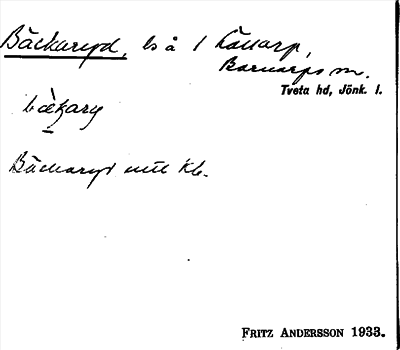 Bäckaryd, ls å 1 Källarp,
Barnarps sn.
Tveta hd, Jönk. l.
bækary
Bäckaryd mtl Kb.
FRITZ ANDERSSON 1933.